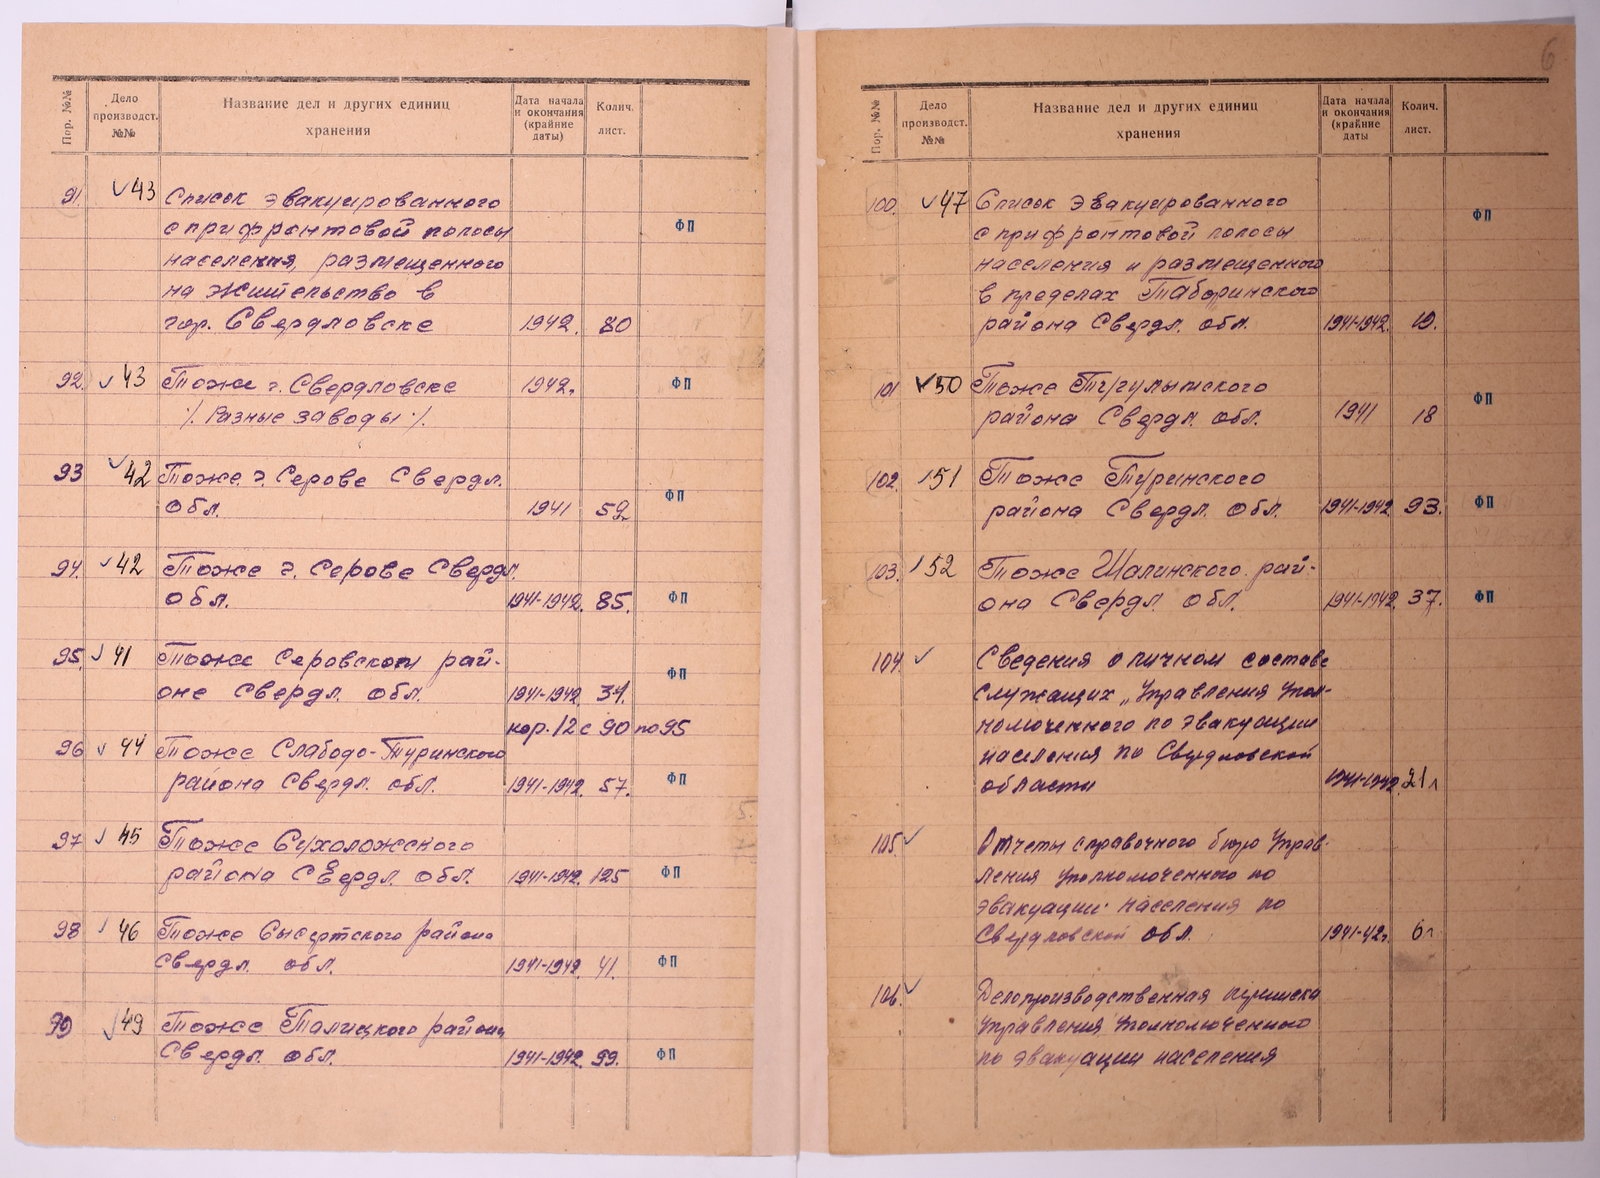 Пор. №№
Дело производст. №№
Название дел и других единиц хранения
Дата начала и окончания (крайние даты)
Колич. лист.
91 43 Список эвакуированного
с прифронтовой полосы ФП
населения, размещенного
на жительство в
гор. Свердловске 1942. 80
92. 43 Тоже г. Свердловске 1942. ФП
/. Разные заводы ./.
93 42 Тоже г. Серове Свердл.
обл. 1941 59. ФП
94. 42 Тоже г. Серове Свердл.
обл. 1941-1942. 85. ФП
95. 41 Тоже Серовском рай-
оне Свердл. обл. 1941-1942. 34. ФП
кор. 12 с 90 по 95
96 44 Тоже Слабодо-Туринского
района Свердл. обл. 1941-1942. 57. ФП
97 45 Тоже Сухоложского
района Свердл. обл. 1941-1942. 125 ФП
98 46 Тоже Сысертского района
Свердл. обл. 1941-1942. 41. ФП
99 49 Тоже Талицкого района
Свердл. обл. 1941-1942. 99. ФП
6
Пор. №№
Дело производст. №№
Название дел и других единиц хранения
Дата начала и окончания (крайние даты
Колич. лист.
100. 47 Список эвакуированного
с прифронтовой полосы ФП
населения и размещенного
в пределах Таборинского
района Свердл. обл. 1941-1942. 19.
101 50 Тоже Тугулымского
района Свердл. обл. 1941 18 ФП
102. 51 Тоже Туринского
района Свердл. обл. 1941-1942 93. ФП
103. 52 Тоже Шалинского рай-
она Свердл. обл. 1941-1942 37. ФП
104. Сведения о личном составе
служащих „Управления Упол-
номоченного по эвакуации
населения по Свердловской
области 1941-1942 21 л
105. Отчеты справочного бюро Управ-
ления Уполномоченного по
эвакуации населения по
Свердловской обл. 1941-42г. 6л
106. Делопроизводственная переписка
Управления Уполномоченного
по эвакуации населения